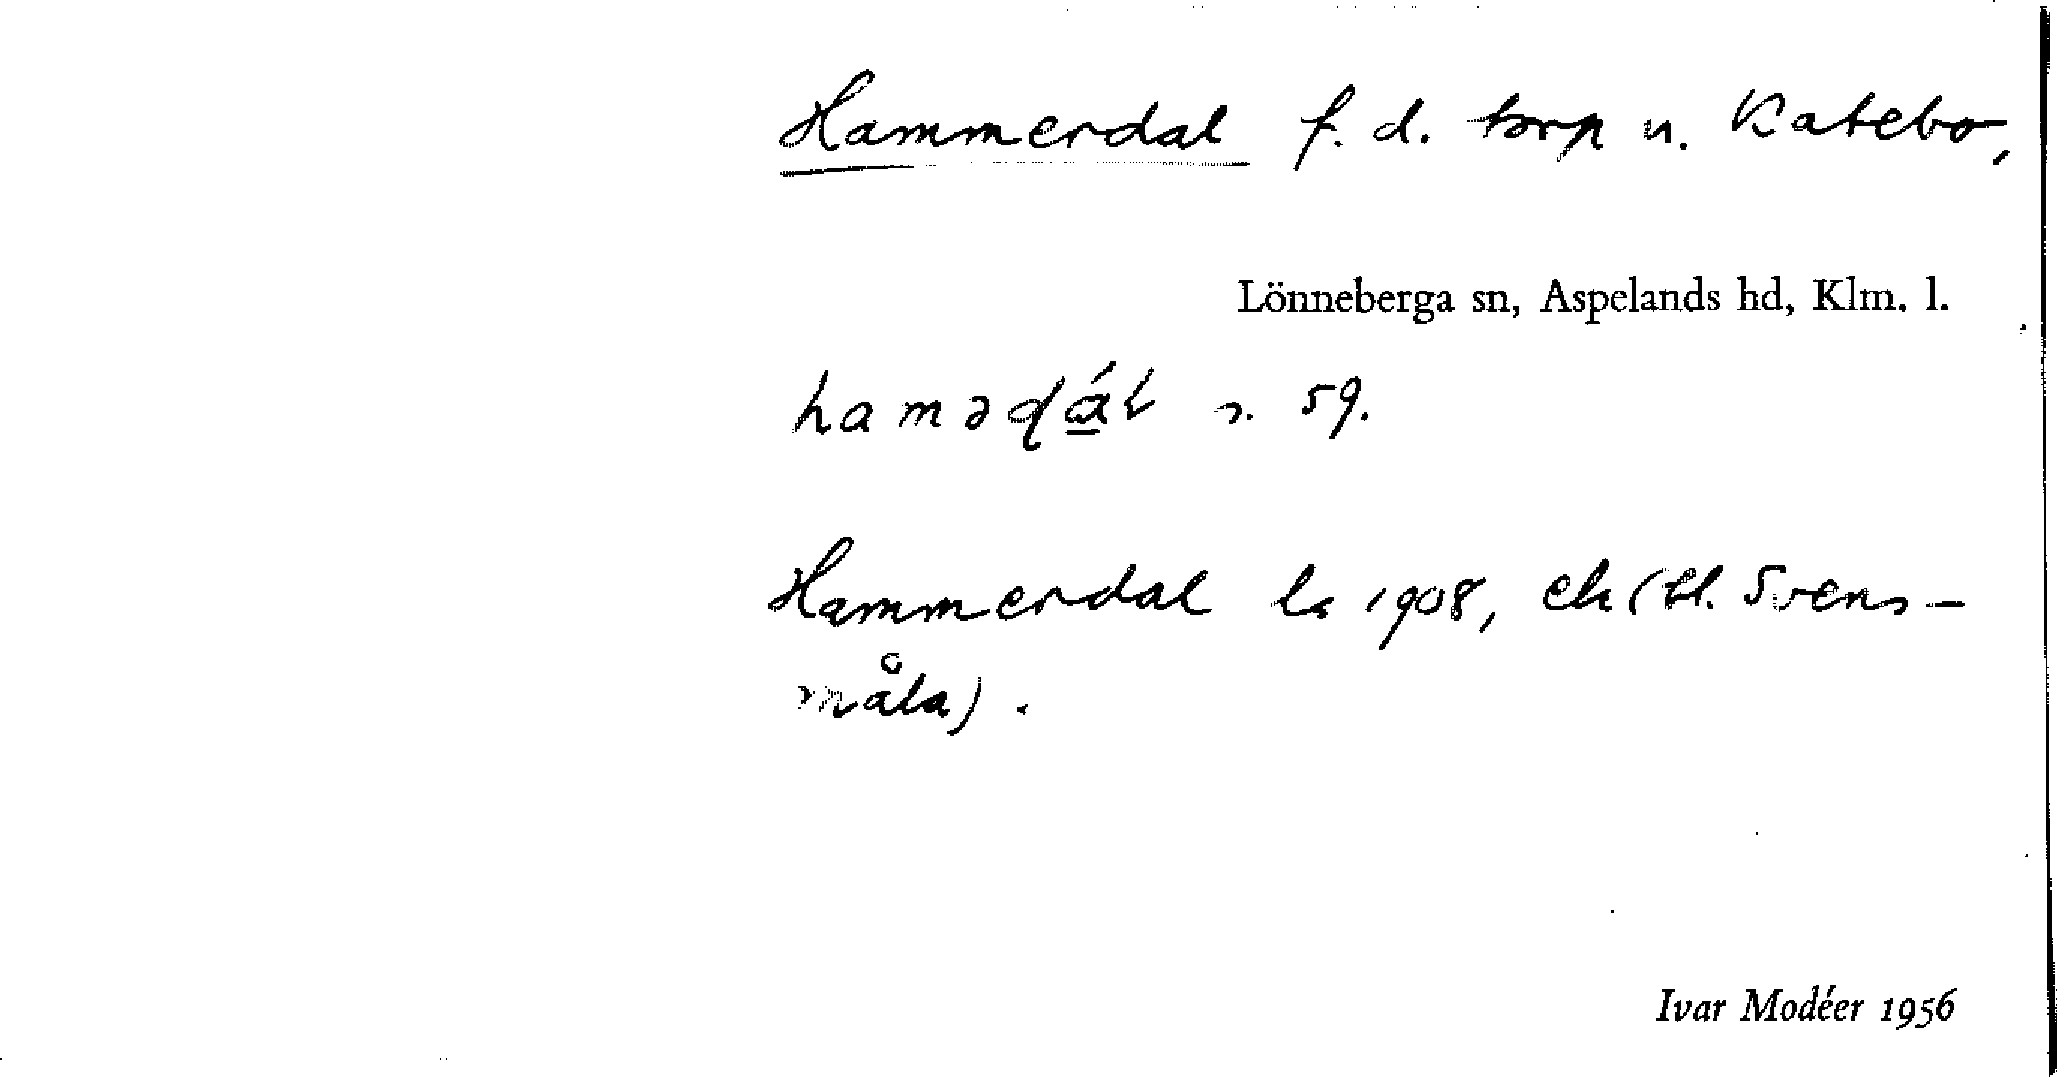 Hammerdal f. d. torp u. Katebo,
Lönneberga sn, Aspelands hd, Klm. l.
59.
Hammerdal 1908, ek (bl. Svens-
måla).
Ivar Modéer 1956